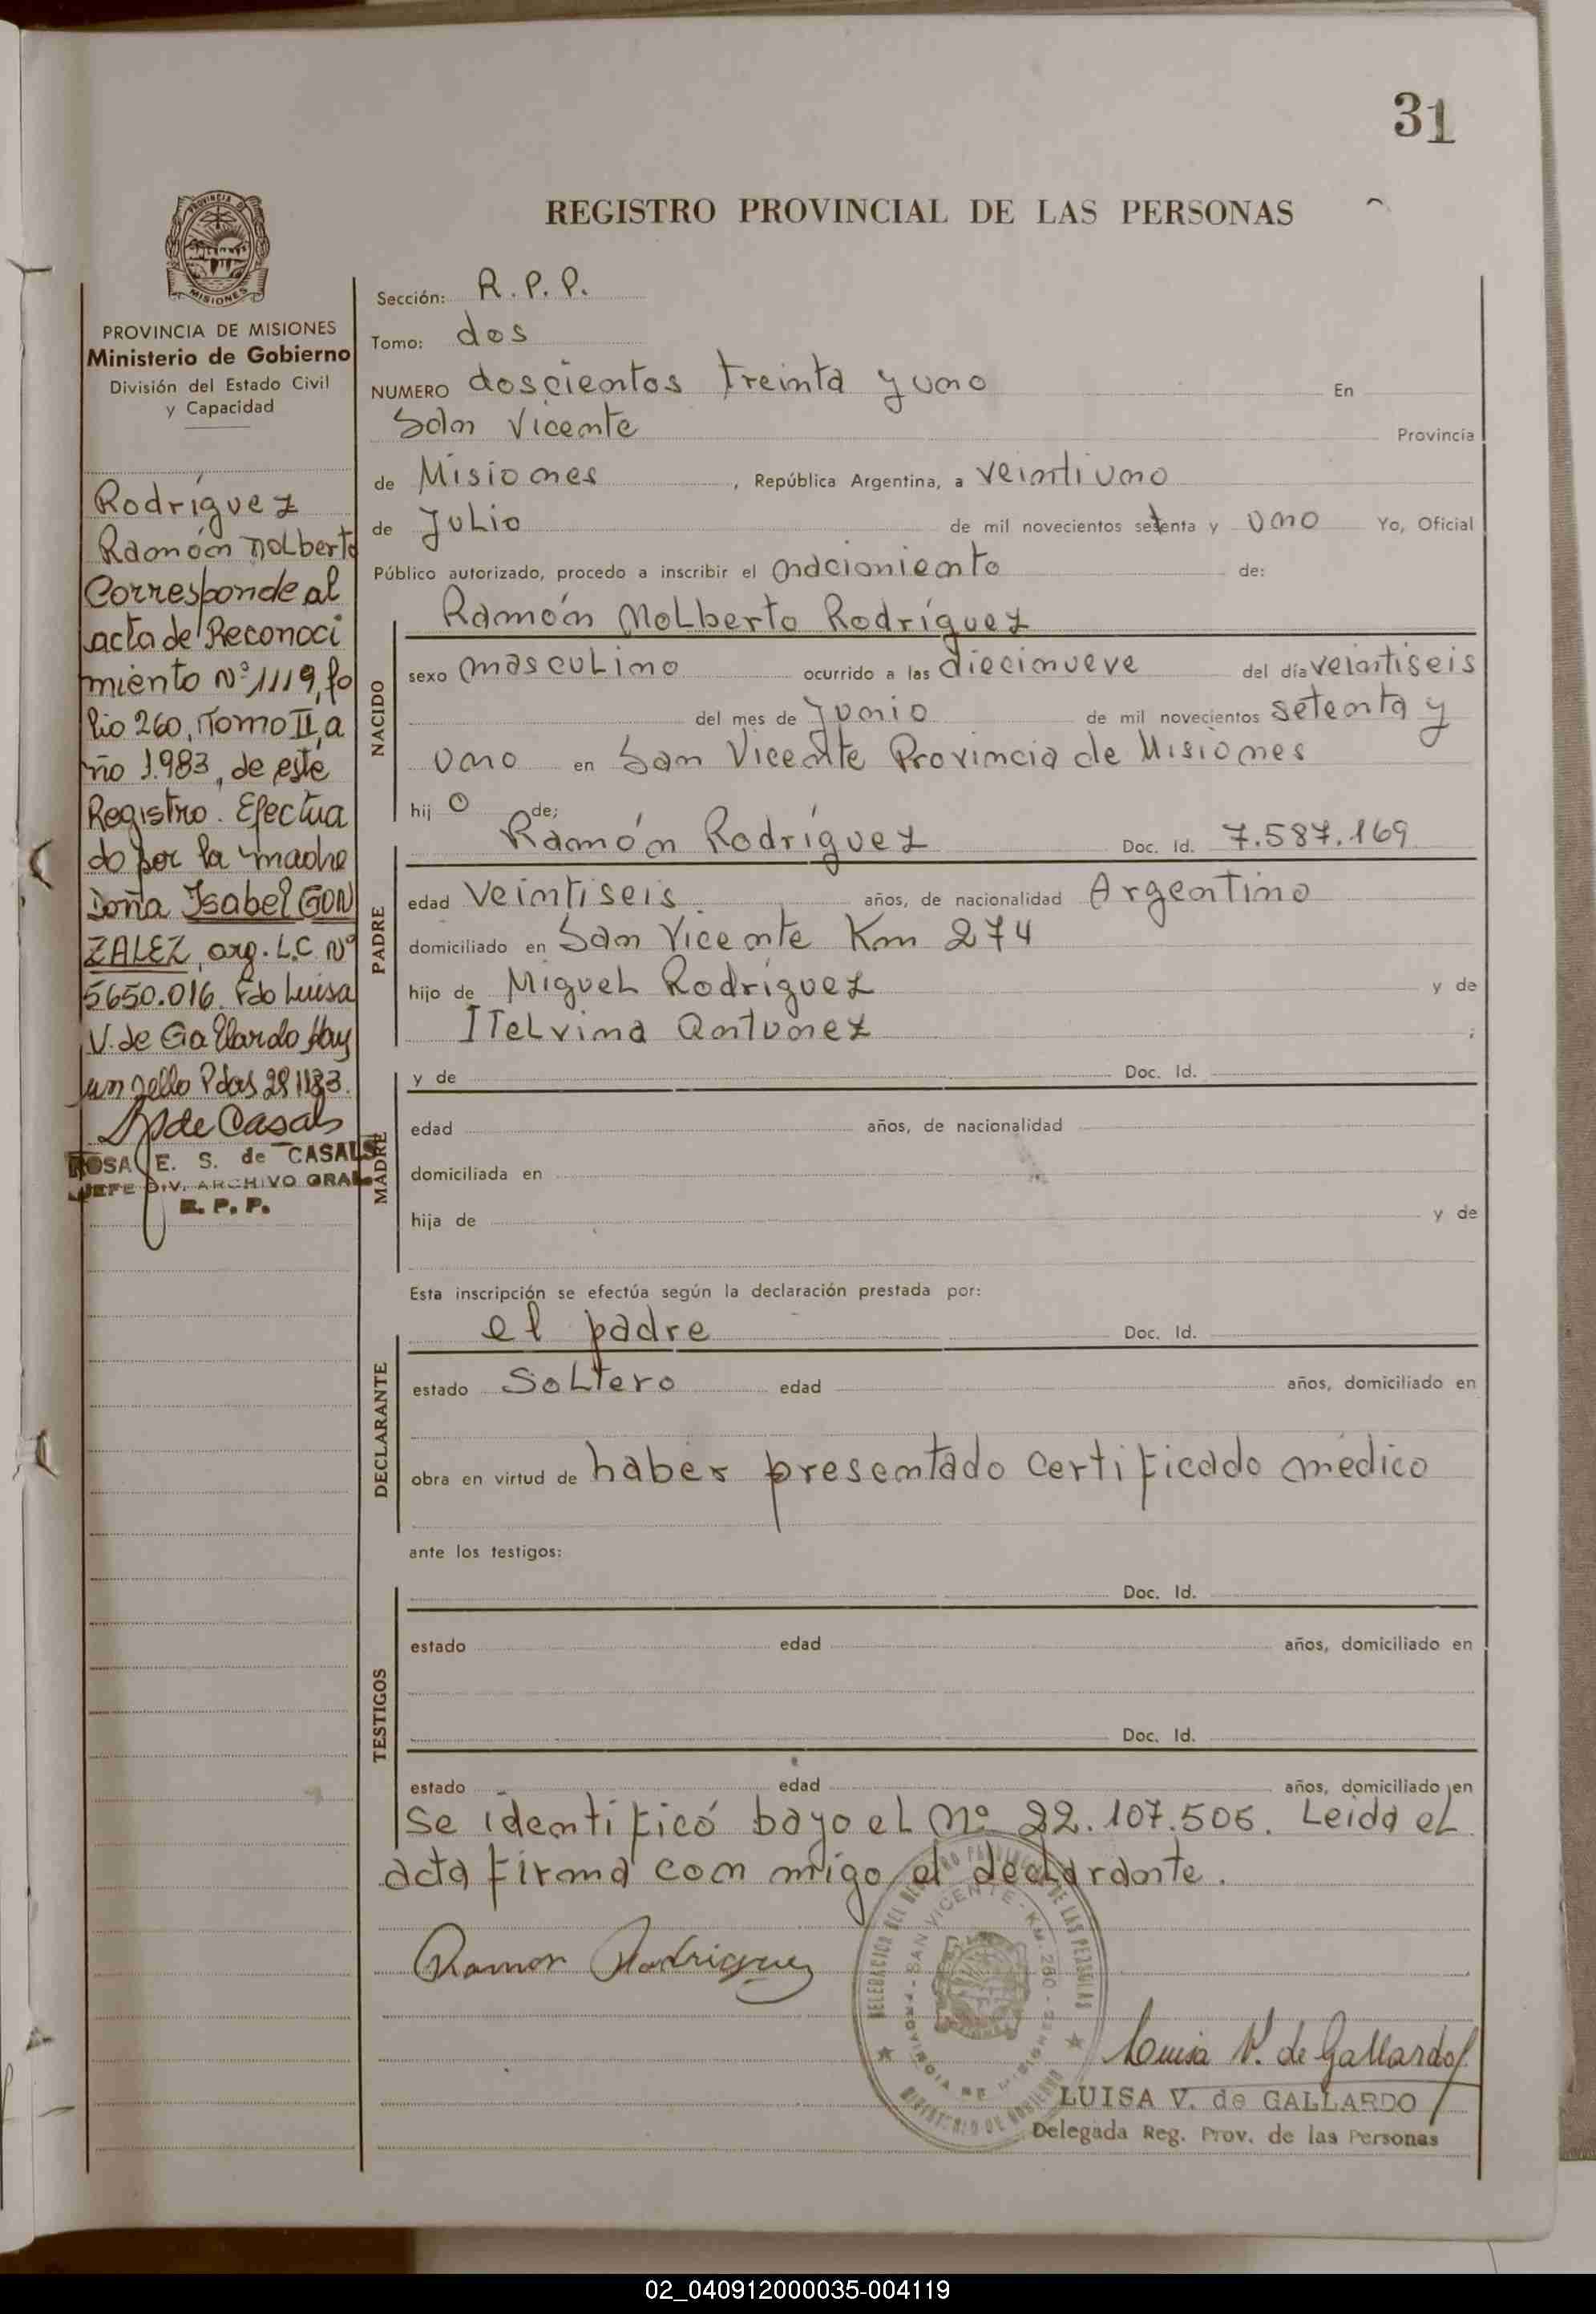 31
REGISTRO PROVINCIAL DE LAS PERSONAS
PROVINCIA DE MISIONES
PROVINCIA DE MISIONES
Ministerio de Gobierno
División del Estado Civil
y Capacidad
Rodríguez
Ramón Nolberto
Corresponde al
acta de Reconoci
miento Nº 1119, fo
lio 260, Tomo II, a
ño 1.983, de este
Registro. Efectua
do por la madre
Doña Isabel GON
ZALEZ, arg. L.C. Nº
5650.016. Fdo Luisa
V. de Gallardo Hay
un sello Pdas 281183.
de Casals
ROSA E. S. de CASALS
JEFE DIV. ARCHIVO GRAL
R. P. P.
Sección: R. P. P.
Tomo: dos
NUMERO doscientos treinta y uno En
San Vicente Provincia
de Misiones, República Argentina, a veintiuno
de Julio de mil novecientos setenta y uno Yo, Oficial
Público autorizado, procedo a inscribir el nacimiento de:
Ramón Nolberto Rodríguez
NACIDO
sexo masculino ocurrido a las diecinueve del día veintiseis
del mes de Junio de mil novecientos setenta y
uno en San Vicente Provincia de Misiones
hijo de;
Ramón Rodríguez Doc. Id. 7.587.169
PADRE
edad veintiseis años, de nacionalidad Argentino
domiciliado en San Vicente Km 274
hijo de Miguel Rodríguez y de
Itelvina Antunez ;
MADRE
y de Doc. Id.
edad años, de nacionalidad
domiciliada en
hija de y de
Esta inscripción se efectúa según la declaración prestada por:
DECLARANTE
el padre Doc. Id.
estado Soltero edad años, domiciliado en
obra en virtud de haber presentado certificado médico
ante los testigos:
TESTIGOS
Doc. Id.
estado edad años, domiciliado en
Doc. Id.
estado edad años, domiciliado en
se identificó bajo el Nº 22.107.506. Leida el
acta firma con migo el declarante.
Ramon Rodriguez
DELEGACION DEL REGISTRO PROVINCIAL DE LAS PERSONAS
SAN VICENTE - KM. 260 - PROVINCIA DE MISIONES
MINISTERIO DE GOBIERNO
Luisa V. de Gallardo
LUISA V. de GALLARDO
Delegada Reg. Prov. de las Personas
02_040912000035-004119